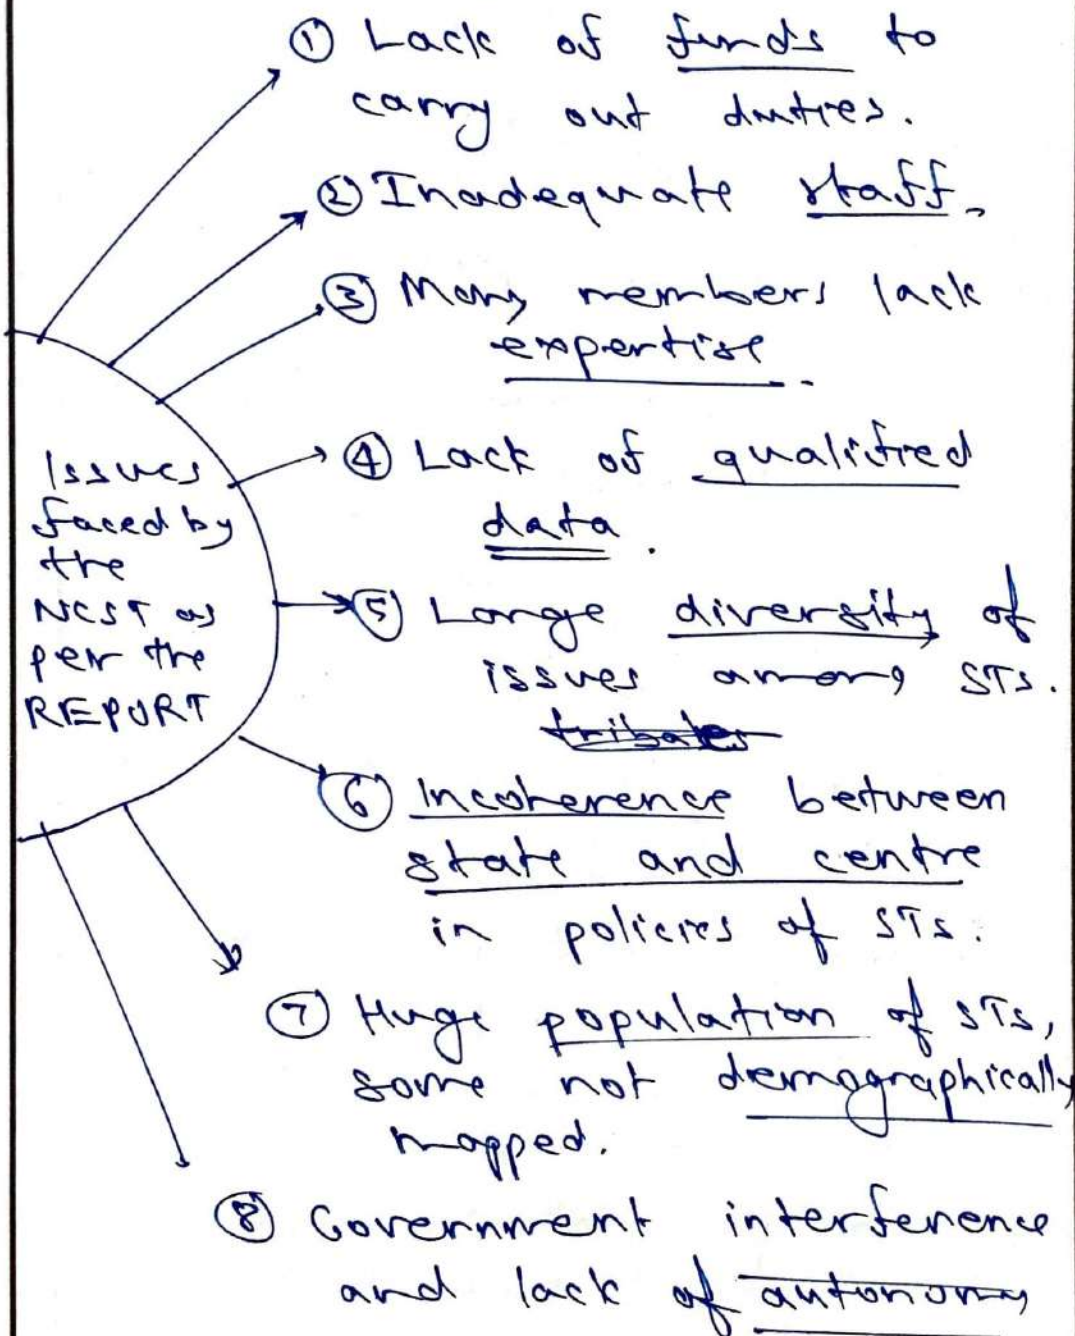 Issues
faced by
the
NCST as
per the
REPORT
① Lack of funds to
carry out duties.
② Inadequate staff.
③ Many members lack
expertise.
④ Lack of qualified
data.
⑤ Large diversity of
issues among STs.
tribates
⑥ Incoherence between
state and centre
in policies of STs.
⑦ Huge population of STs,
some not demographically
mapped.
⑧ Government interference
and lack of autonomy